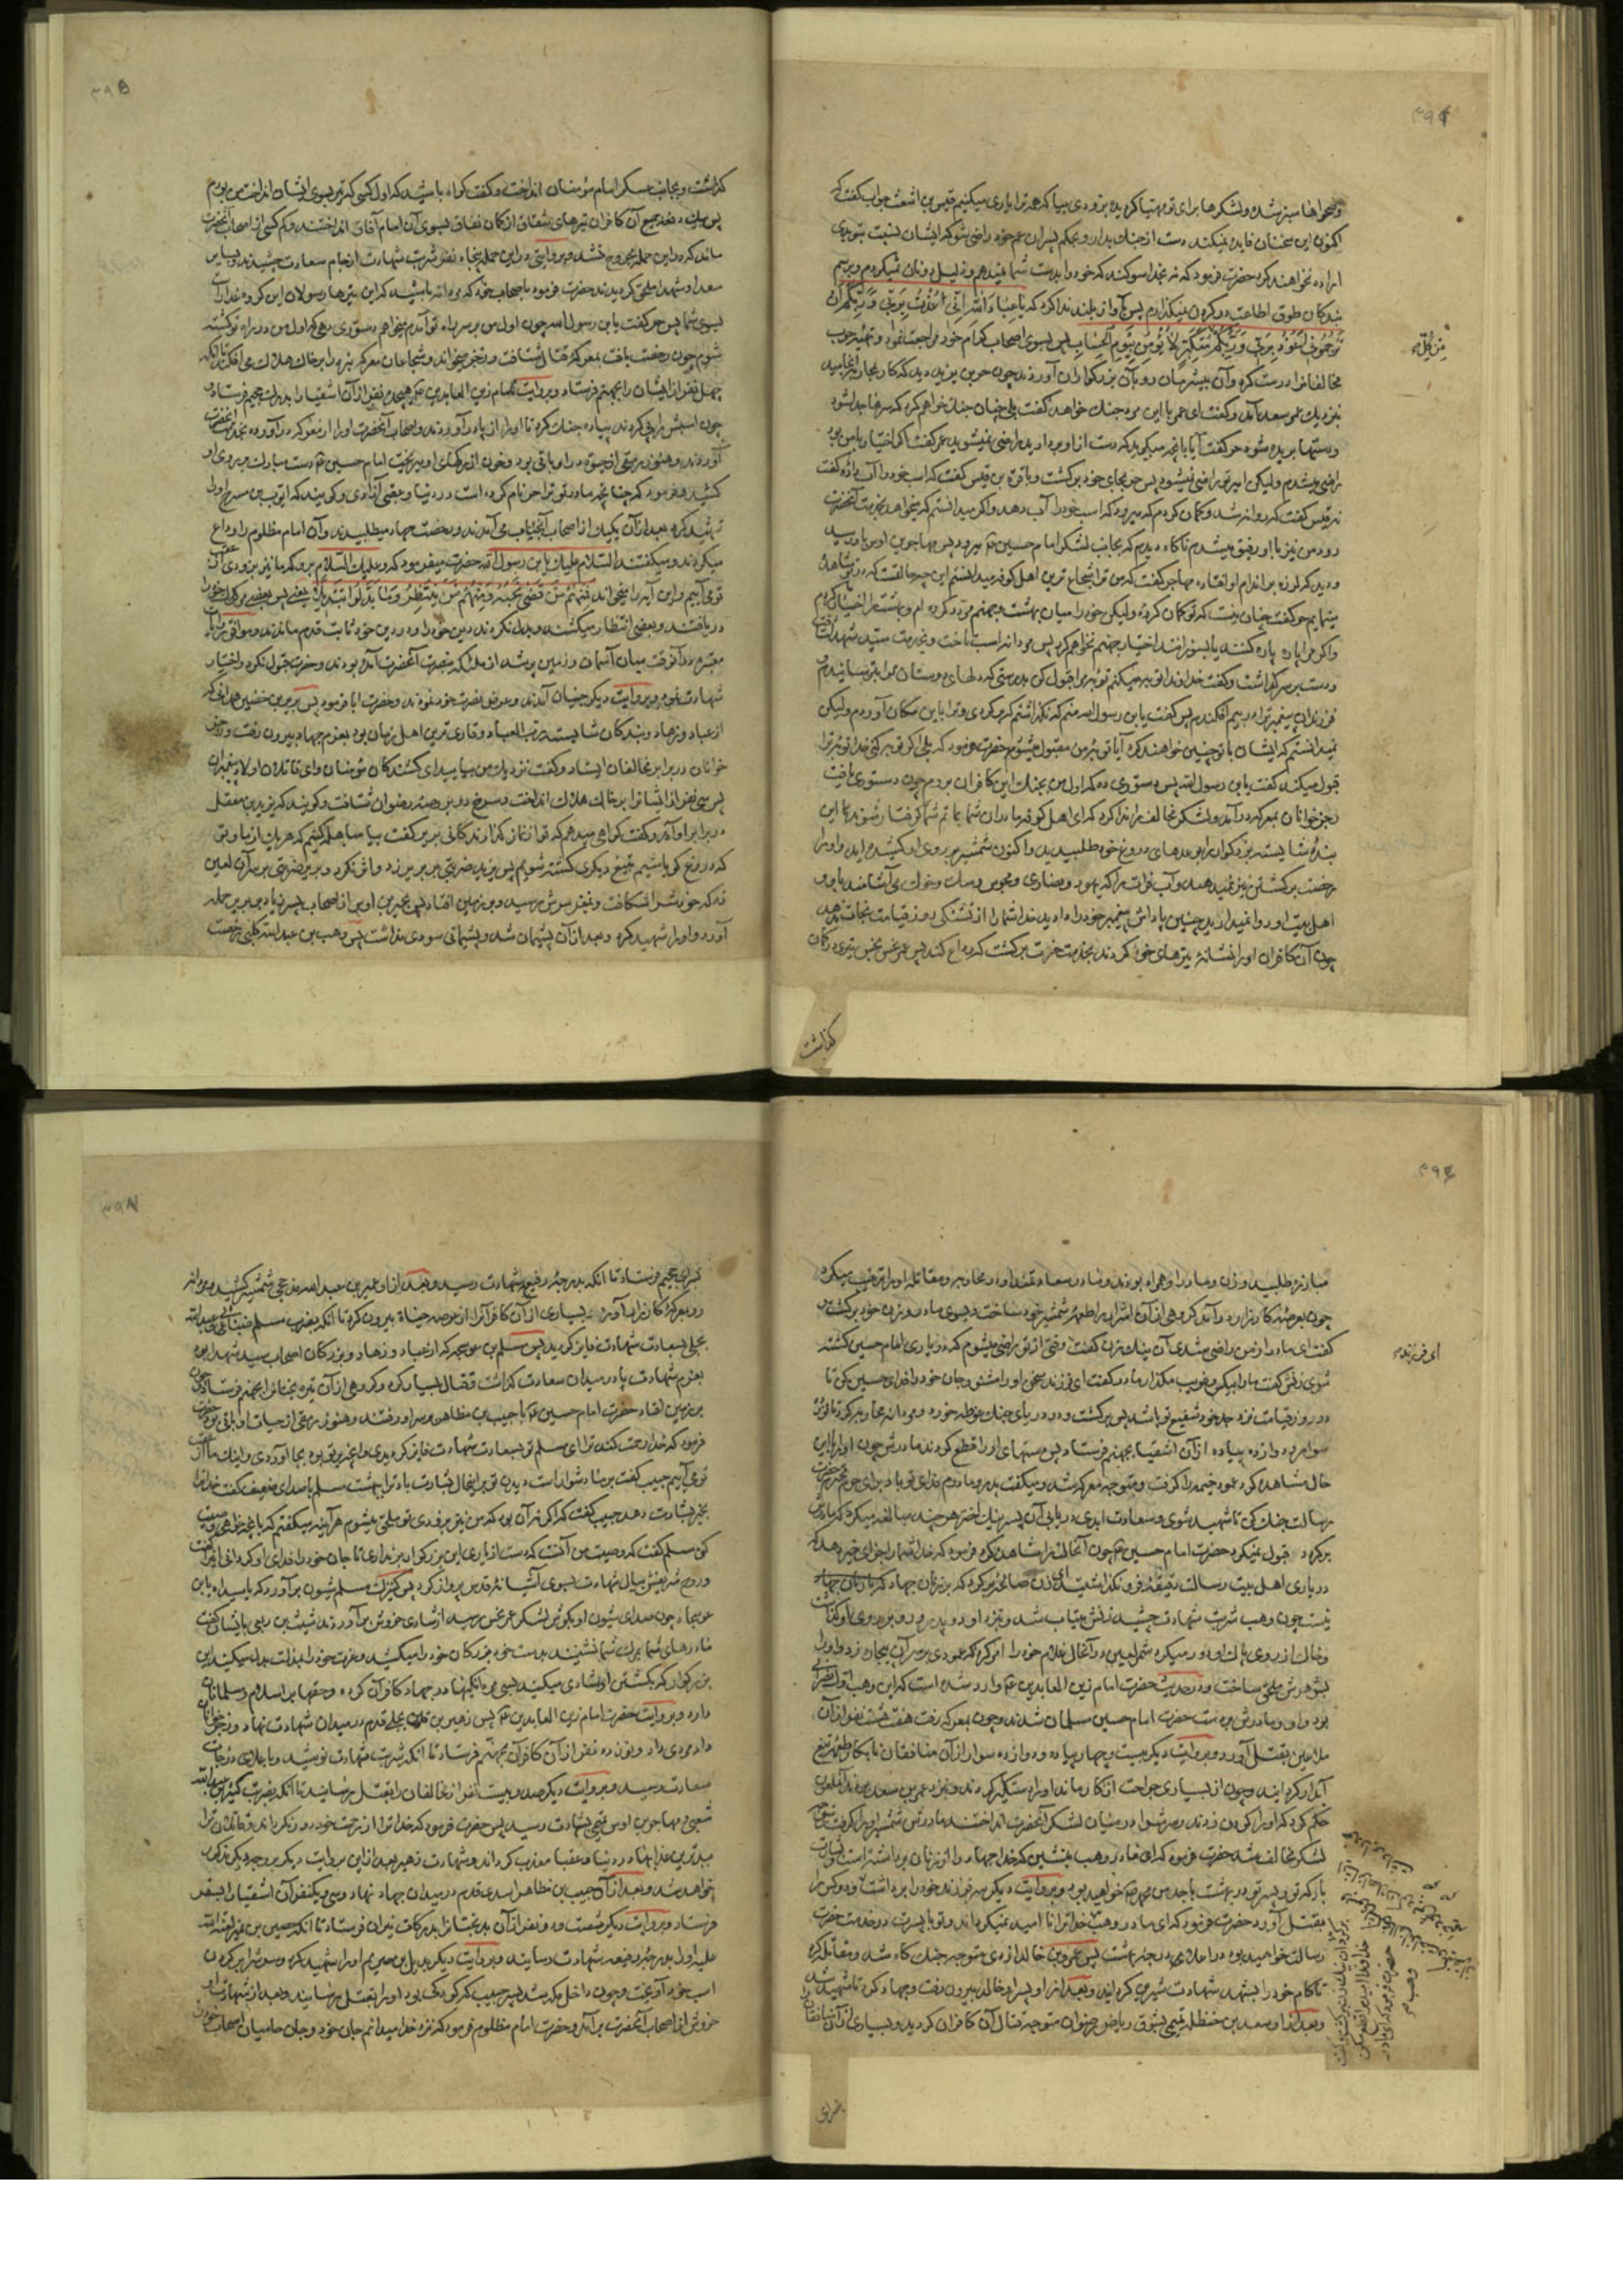 وصحراها سبز شده ولشکرها برای تو مهیا کردیده بزودی بیا که همه ترا یاری میکنیم قیس بن اشعث جواب گفت که
اکنون این سخنان فایده نمیکند دست از جنک بدار و بحکم پسران عم خود راضی شو که ایشان نسبت بتو بدی
اراده نخواهند کرد حضرت فرمود که نه بخدا سوکند که خود را بدست شما نمیدهم و ذلیل دونان نمیکردم و برسم
بندکان طوق اطاعت در کردن نمیکذارم پس بآواز بلند ندا کرد که یا عباد الله انی عذت بربی و ربکم ان
ترجمون اعوذ بربی و ربکم متکبر لا یؤمن بیوم الحساب پس بسوی اصحاب کرام خود مراجعت نمود
مخالفانرا درست کرده وآن بیشرمان رو بآن بزرکواران آوردند چون حر بن یزید دید که کار بمحاربه انجامید
بنزدیک عمر سعد آمد وگفت ای عمر با این مرد جنک خواهی کرد گفت بلی چنان جنک خواهم کرد که سرها جدا شود
ودستها بریده شود حر گفت آیا بآنچه میکوید که دست از او بردارید راضی نمیشوید عمر گفت اکر اختیار با من بود
راضی میشدم ولیکن امیر تو راضی نمیشود پس حر بجای خود برکشت و با قرة بن قیس گفت که اسب خود را آب داده گفت
نه قیس گفت که روانه شد وکمان کردم که میرود که اسب خود را آب دهد واکر میدانستم که میخواهد بخدمت آنحضرت
رود من نیز با او رفیق میشدم ناکاه دیدم که بجانب لشکر امام حسین ع میرود پس مهاجر بن اوس باو رسید
ودید که لرزه بر اندام او افتاده مهاجر گفت که من ترا شجاع ترین اهل کوفه میدانستم این چه حالتست که در تو مشاهده
مینمایم حر گفت چنان نیست که تو کمان کرده ولیکن خود را میان بهشت وجهنم مردد کرده ام و بهشت را اختیار کردم
واکر مرا پاره پاره کنند یا بسوزانند اختیار جهنم نخواهم کرد پس مردانه اسب تاخت و بخدمت سید شهدا رفت
ودست بر سر کذاشت وگفت خداوندا توبه میکنم توبه مرا قبول کن بدرستی که دلهای دوستان ترا بترسانیدم و
فرزندان پیغمبر ترا به بیم افکندم پس گفت یا بن رسول الله منم که نکذاشتم که برکردی وترا باین مکان آوردم ولیکن
نمیدانستم که ایشان با تو چنین خواهند کرد آیا توبه من مقبول میشود حضرت فرمود که بلی اکر توبه کنی خدا توبه ترا
قبول میکند گفت یا بن رسول الله پس دستوری ده که اول من بجنک این کافران بروم چون دستوری یافت
رجز خوانان بمعرکه درآمد ولشکر مخالف را ندا کرد که ای اهل کوفه مادران شما بماتم شما کرفتار شوند آیا این
بندهٔ شایسته بزرکوار را بوعدهای دروغ خود طلبیدید واکنون شمشیر بر روی او کشیده اید واو را
رخصت برکشتن نیز نمیدهید وآب فرات را که یهود ونصاری ومجوس وسک وخوک می آشامند باو و
اهل بیت او روا نمیدارید چنین پاداش پیغمبر خود را دادید خدا شما را از تشنکی روز قیامت نجات ندهد
چون آن کافران او را نشانهٔ تیرهای خود کردند بخدمت حضرت برکشت که وداع کند پس عمر نحس نجس تیری در کمان
من کل
کذاشت
کذاشت وبجانب عسکر امام مؤمنان انداخت وگفت کواه باشید که اول کسی که تیر بسوی ایشان انداخت من بودم
پس بیک دفعه جمیع آن کافران تیرهای شقاق از کمان نفاق بسوی آن امام آفاق انداختند وکم کسی از اصحاب آنحضرت
ماند که در این حمله مجروح نشد وبروایتی در این حمله پنجاه نفر شربت شهادت از جام سعادت چشیدند وبسایر
سعدا وشهدا ملحق کردیدند حضرت فرمود باصحاب خود که مردانه باشید که این تیرها رسولان این کروه غدارست
بسوی شما پس حر گفت یا بن رسول الله چون اول من بر سر راه تو آمدم میخواهم دستوری دهی که اول من در راه تو کشته
شوم چون رخصت یافت بمعرکهٔ قتال شتافت ورجز میخواند وشجاعان معرکه نبرد را بر خاک هلاک می افکند تا آنکه
چهل نفر از ایشان را بجهنم فرستاد وبروایت امام زین العابدین ع هیجده نفر از آن اشقیا را بدرک جحیم فرستاد و
چون اسبش را پی کردند پیاده جنک کرد تا او را از پا درآوردند واصحاب آنحضرت او را از معرکه درآورده بخدمت آنحضرت
آوردند وهنوز رمقی از حیوة در او باقی بود وخون از رکهای او میریخت امام حسین ع دست مبارک بر روی او
کشید وفرمود که چنانچه مادر تو ترا حر نام کرده است در دنیا وعقبی آزادی وکویند که ایوب بن مسرح او را
شهید کرد بعد از آن یک یک از اصحاب آنجناب می آمدند ورخصت جهاد میطلبیدند وآن امام مظلوم را وداع
میکردند ومیکفتند السلام علیک یا بن رسول الله حضرت میفرمود که وعلیک السلام برو که ما نیز بزودی از عقب
تو می آییم واین آیه را میخواند فمنهم من قضی نحبه ومنهم من ینتظر وما بدلوا تبدیلا یعنی پس بعضی مرک خود را
دریافتند وبعضی انتظار میکشند وبدل نکردند دین خود را ودر دین خود ثابت قدم ماندند وموافق روایات
معتبره در آنوقت میان آسمان وزمین پر شد از ملائکه بنصرت آنحضرت آمده بودند وحضرت قبول نکرد واختیار
شهادت نمود وبروایت دیکر جنیان آمدند وعرض نصرت خود نمودند وحضرت ابا فرمود پس بریر بن خضیر همدانی که
از عباد وزهاد وبندکان شایسته رب العباد وقاری ترین اهل زمان بود بعزم جهاد بیرون رفت ورجز
خوانان در برابر مخالفان ایستاد وگفت نزدیک من بیایید ای کشندکان مؤمنان وای قاتلان اولاد پیغمبران
پس سی نفر از ایشانرا بر خاک هلاک انداخت وسرخ رو بروضه رضوان شتافت وکویند که یزید بن معقل
در برابر او آمد وگفت کواهی میدهم که تو از نماز کذارندکانی بریر گفت بیا مباهله کنیم که هر یک از ما وتو
که دروغ کو باشیم بتیغ دیکری کشته شویم پس یزید ضربتی بر بریر زد واثر نکرد وبریر ضربتی بر سر آن لعین
زد که خودش را شکافت وبمغز سرش رسید وبر زمین افتاد پس بحیر بن اوس از اصحاب پسر زیاد بر بریر حمله
آورد واو را شهید کرد وبعد از آن پشیمان شد وپشیمانی سودی نداشت پس وهب بن عبد الله کلبی رخصت
مبارزه طلبید وزن ومادر او همراه بودند ومادر سعادتمند او را در محاربه ومقاتله او را ترغیب میکرد
چون بعرصهٔ کارزار درآمد کروهی از آن اشرار را طعمهٔ شمشیر خود ساخت وبسوی مادر وزن خود برکشت و
گفت ای مادر از من راضی شدی آن نیک زن گفت وقتی از تو راضی میشوم که در یاری امام حسین کشته
شوی زنش گفت ما را بیکس وغریب مکذار مادر گفت ای فرزند سخن او را مشنو وجان خود را فدای حسین کن تا
در روز قیامت نزد جد خود شفیع تو باشد پس برکشت ودر دریای جنک غوطه خورد ومردانه محاربه کرد تا نوزده
سوار ودوازده پیاده از آن اشقیا بجهنم فرستاد پس دستهای او را قطع کردند مادرش چون او را باین
حال مشاهده کرد عمود خیمه را کرفت ومتوجه معرکه شد ومیکفت پدر ومادرم فدای تو باد برای حرم محترم حضرت
رسالت جنک کن تا شهید شوی وسعادت ابدی دریابی آن پسر نیک اختر هر چند مبالغه میکرد که مادرش
برکردد قبول نمیکرد حضرت امام حسین ع چون آنحالت را مشاهده کرد فرمود که خدا شما را جزای خیر دهد که
در یاری اهل بیت رسالت دقیقه فرو نکذاشتید ای زن صالحه برکرد که بر زنان جهاد
نیست چون وهب شربت شهادت چشید زنش بیتاب شد وبنزد او دوید ورو بر روی او کذاشت
وخاک از روی پاک او دور میکرد شمر لعین در آنحال غلام خود را امر کرد که عمودی بر سر آن بیچاره زد واو را
بشوهرش ملحق ساخت ودر حدیث حضرت امام زین العابدین ع وارد شده است که این وهب اول نصرانی
بود واو ومادرش بدست حضرت امام حسین مسلمان شدند وچون بمعرکه رفت هفت هشت نفر از آن
ملاعین بقتل آورد وبروایت دیکر بیست وچهار پیاده ودوازده سوار از آن منافقان نابکار طعمه تیغ
آبدار کردانید وچون از بسیاری جراحت از کار ماند او را دستکیر کردند وبنزد عمر بن سعد بردند آنلعین
حکم کرد که او را کردن زدند وسرش را در میان لشکر آنحضرت انداختند مادرش شمشیر او برکرفت ومتوجه
لشکر مخالف شد حضرت فرمود که ای مادر وهب بنشین که خدا جهاد را از زنان برداشته است بشارت
باد که تو وپسر تو در بهشت با جدم محمد ص خواهید بود وبروایت دیکر سر فرزند خود را برداشت ودو کس را
بقتل آورد حضرت فرمود که ای مادر وهب خدا ترا نا امید نمیکرداند وتو با پسرت در خدمت حضرت
رسالت خواهید بود در اعلای درجهٔ بهشت پس عمرو بن خالد ازدی متوجه جنکگاه شد ومقاتله کرد
تا کام خود را بشهد شهادت شیرین کردانید وبعد از او پسر او خالد بیرون رفت وجهاد کرد تا شهید شد
وبعد از او سعد بن حنظله تمیمی بشوق ریاض رضوان متوجه قتال آن کافران کردید وبسیاری از آن منافقانرا
ای فرزند
نیران جحیم فرستاد تا آنکه بدرجهٔ رفیع شهادت رسید وبعد از او عمیر بن عبد الله مذحجی شمشیر کشید ومردانه
رو بمعرکهٔ کارزار آورد بسیاری از آن کافرانرا از عرصه حیاة بیرون کرد تا آنکه بضرب مسلم ضبابی وعبد الله
بجلی بسعادت شهادت فایز کردید پس مسلم بن عوسجه که از عباد وزهاد وبزرکان اصحاب سید شهدا بود
بعزم شهادت پا در میدان سعادت کذاشت وقتال بسیار کرد وکروهی از آن تیره بختانرا بجهنم فرستاد چون
بر زمین افتاد حضرت امام حسین ع با حبیب بن مظاهر بر سر او رفتند وهنوز رمقی از حیات او باقی بود حضرت
فرمود که خدا رحمت کند ترا ای مسلم تو بسعادت شهادت فایز کردیدی وآنچه بر تو بود بجا آوردی واینک ما از عقب
تو می آییم حبیب گفت بر ما دشوار است دیدن تو بر اینحال بشارت باد ترا ببهشت مسلم با صدای ضعیف گفت خدا ترا
بخیر بشارت دهد حبیب گفت که اکر نه آن بود که من نیز بزودی بتو ملحق میشوم هر آینه میکفتم که بآنچه خواهی وصیت
کن مسلم گفت که وصیت من آنست که دست از یاری این بزرکوار برنداری تا جان خود را فدای او کردانی
وروح شریفش ببال شهادت بسوی آشیانهٔ قدس پرواز کرد پس کنیزک مسلم شیون برآورد که یا سیداه یا بن
عوسجاه چون صدای شیون او بکوش لشکر عمر نحس رسید از شادی خروش برآوردند شبث بن ربعی بایشان گفت
مادرهای شما بمرک شما نشینند بدست خود بزرکان خود را میکشید وعزت خود را بذلت بدل میکنید این
بزرکوار که بکشتن او شادی میکنید بسی نیکیها در جهاد کافران کرده وحقها بر اسلام ومسلمانان
دارد وبروایت حضرت امام زین العابدین ع پس زهیر بن قین بجلی قدم در میدان شهادت نهاد ورجز خوانان
داد مردی داد ونوزده نفر از آن کافران بجهنم فرستاد تا آنکه شربت شهادت نوشید وباعلای درجات
سعادت رسید وبروایت دیکر صد وبیست نفر از مخالفان را بقتل رسانید تا آنکه بضربت کثیر بن عبد الله
شعبی ومهاجر بن اوس تمیمی بشهادت رسید پس حضرت فرمود که خدا ترا از رحمت خود دور نکرداند وقاتلان ترا
ببدترین عذابها در دنیا وعقبا معذب کرداند وشهادت زهیر بعد از این بروایت دیکر بوجه دیکر مذکور
خواهد شد وبعد از آن حبیب بن مظاهر اسدی قدم در میدان جهاد نهاد وسی ویکنفر آن اشقیا را بسقر
فرستاد وبروایت دیکر شصت ودو نفر از آن بدبختانرا بدرکات نیران فرستاد تا آنکه حصین بن نمیر لعنة الله
علیه او را بدرجهٔ رفیعه شهادت رسانید وبروایت دیکر بدیل بن صریم او را شهید کرد وسرش را بر کردن
اسب خود آویخت وچون داخل مکه شد پسر حبیب که کودک بود او را بقتل رسانید وبعد از شهادت او
خروش از اصحاب آنحضرت برآمد وحضرت امام مظلوم فرمود که نزد خدا میدانم جان خود وجان حامیان اصحاب خود را